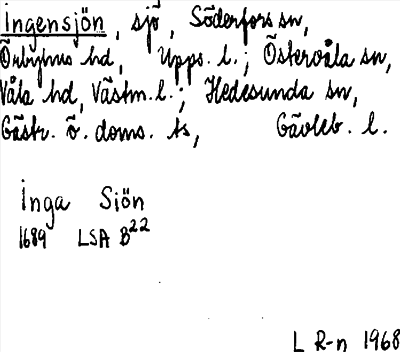 Ingensjön, sjö, Söderfors sn,
Örbyhus hd, Upps. l.; Östervåla sn,
Våla hd, Västm. l.; Hedesunda sn,
Gästr. ö. doms. ts, Gävleb. l.
Inga Siön
1689 LSA B22
L R-n 1968